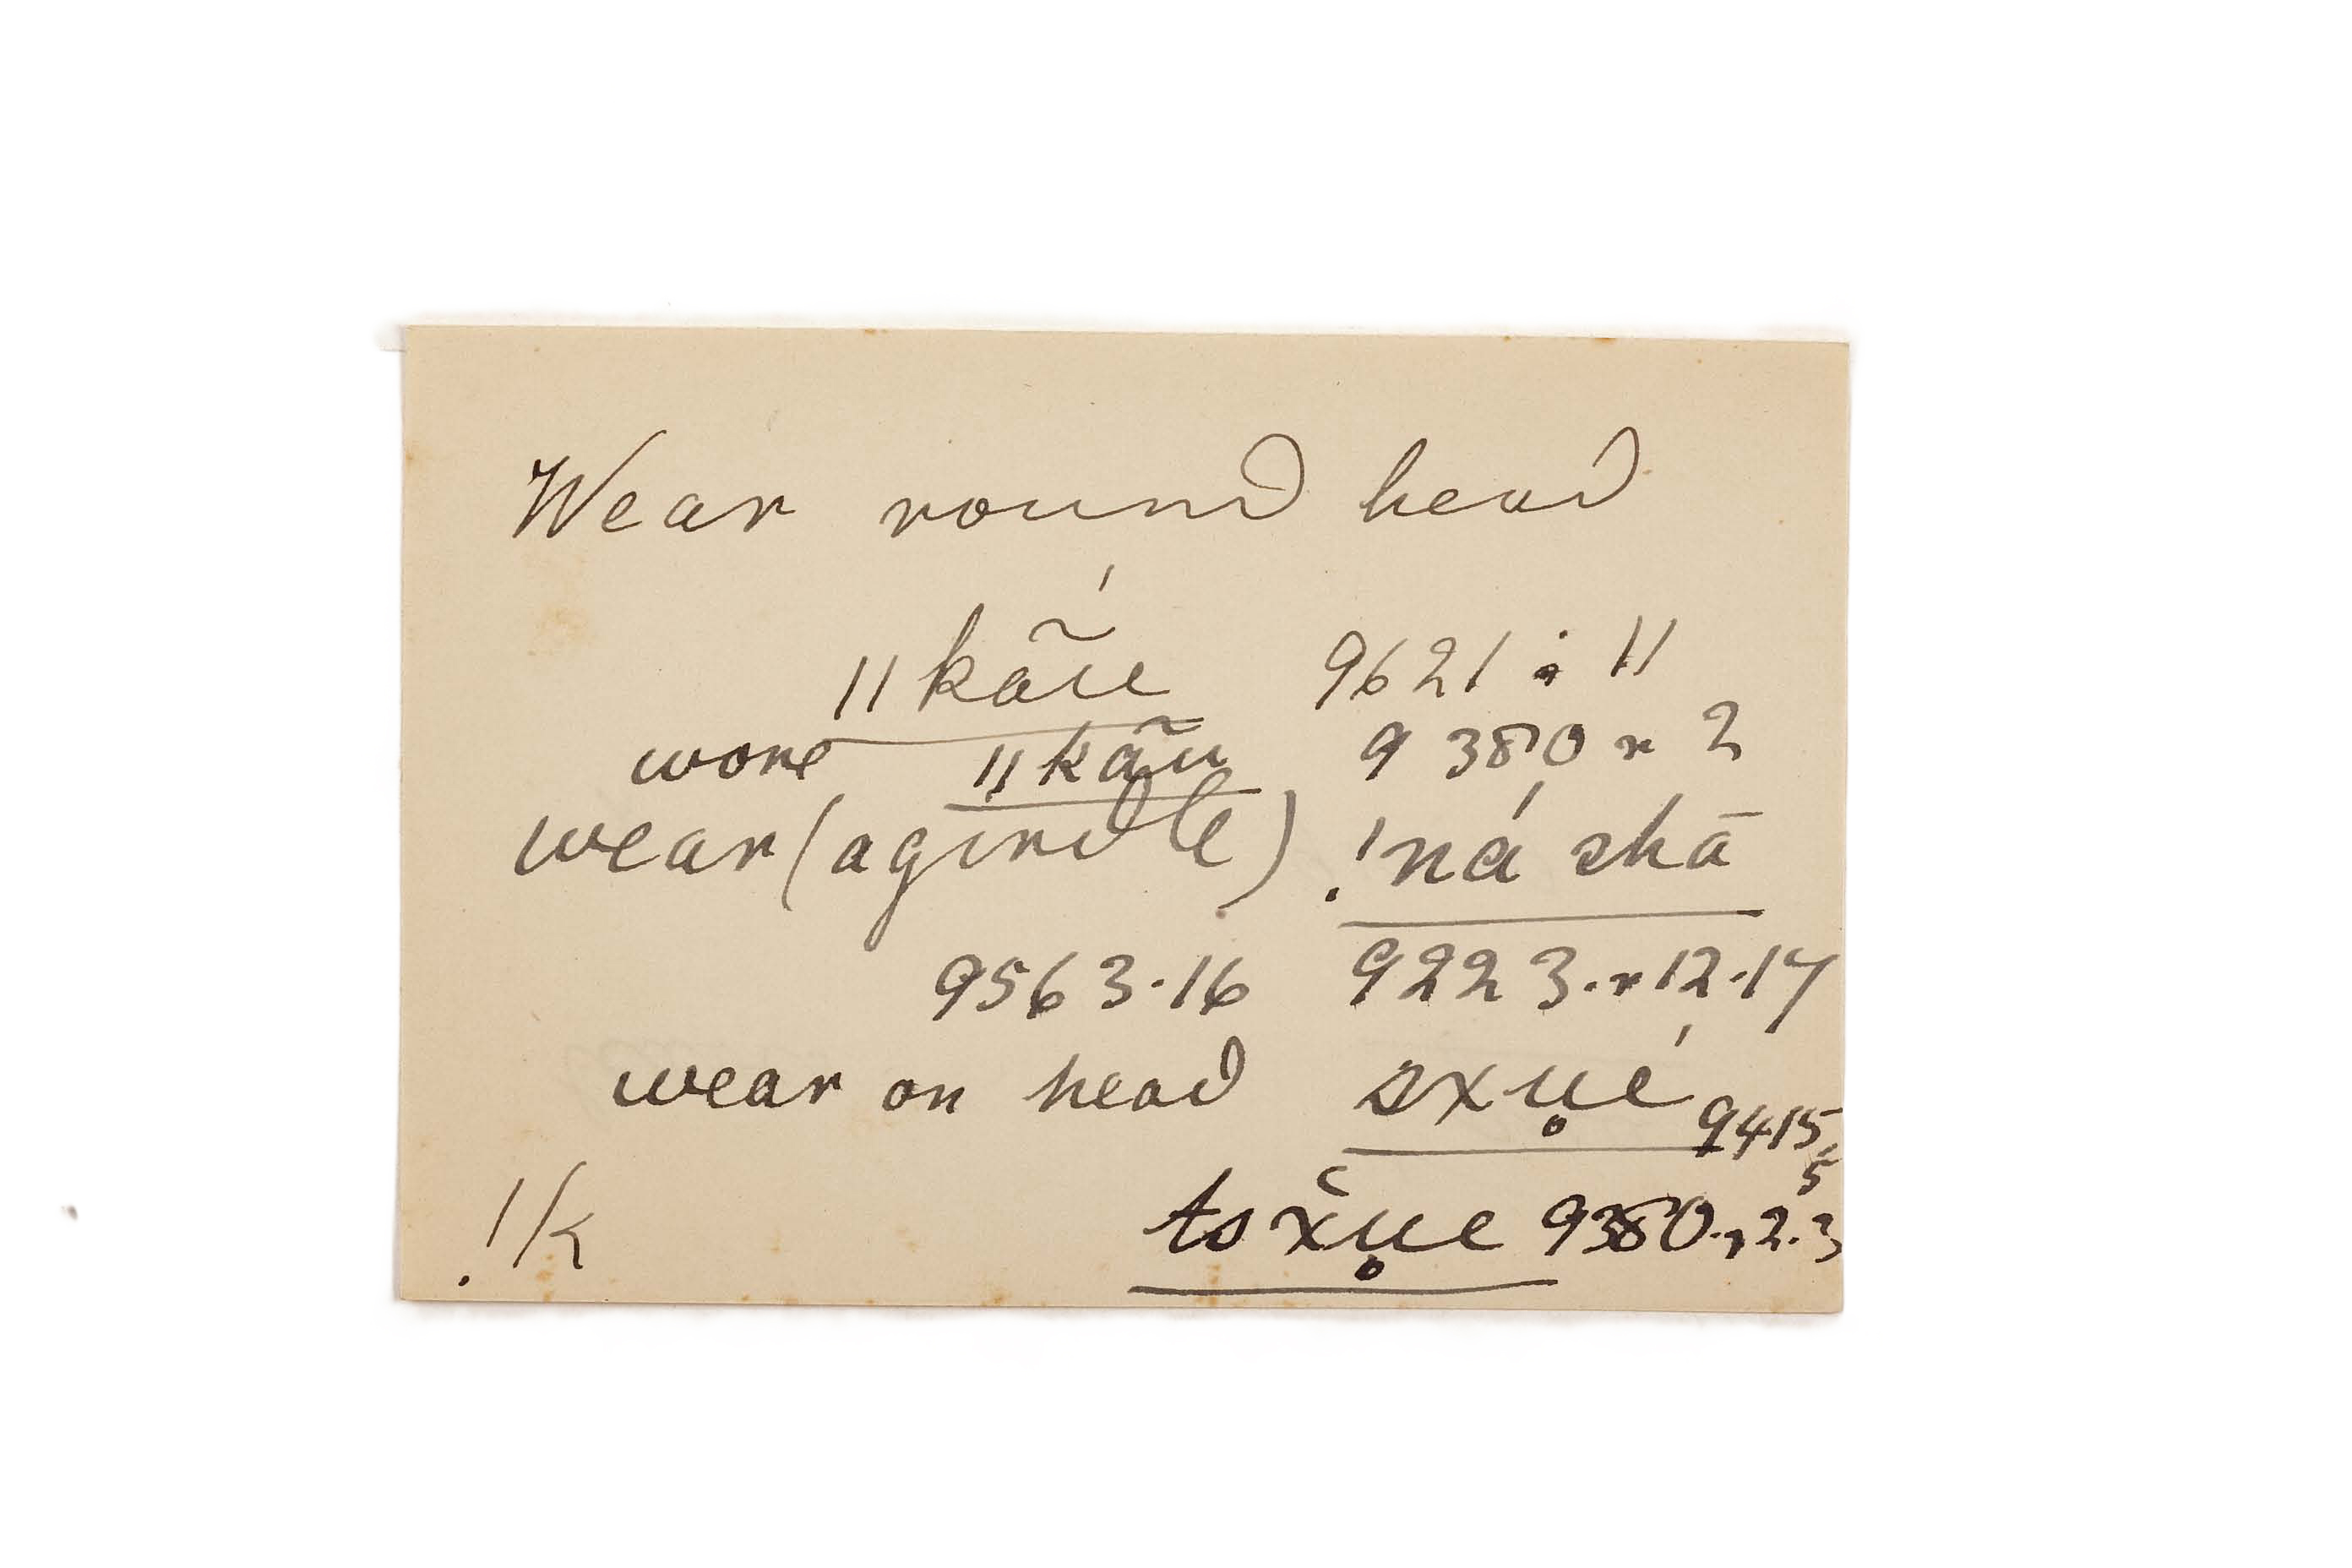 Wear round head
ǁkã́ıe 9621 : 11
wore ǁkãu 9380 r 2
wear (a girdle) !ná shā
9563.16 9223. r 12.17
wear on head sxu̥é 9415.5
!k tsx̆u̥e 9380. r 2.3